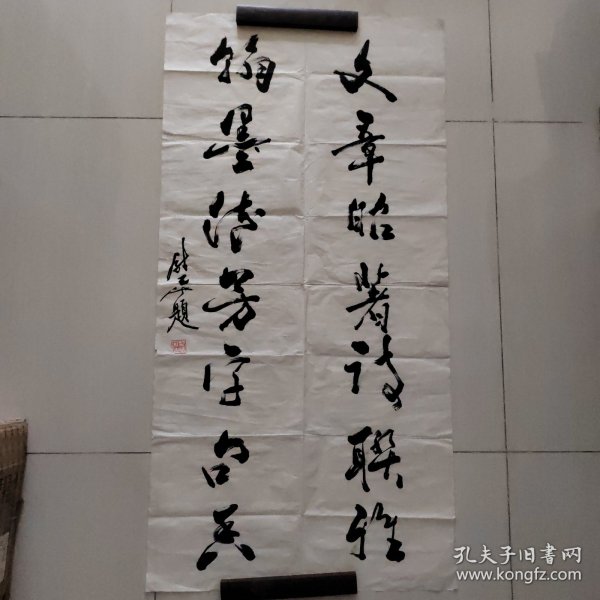 文章昭著詩联雅
翰墨流芳字句香
题
孔夫子旧书网
www.kongfz.com